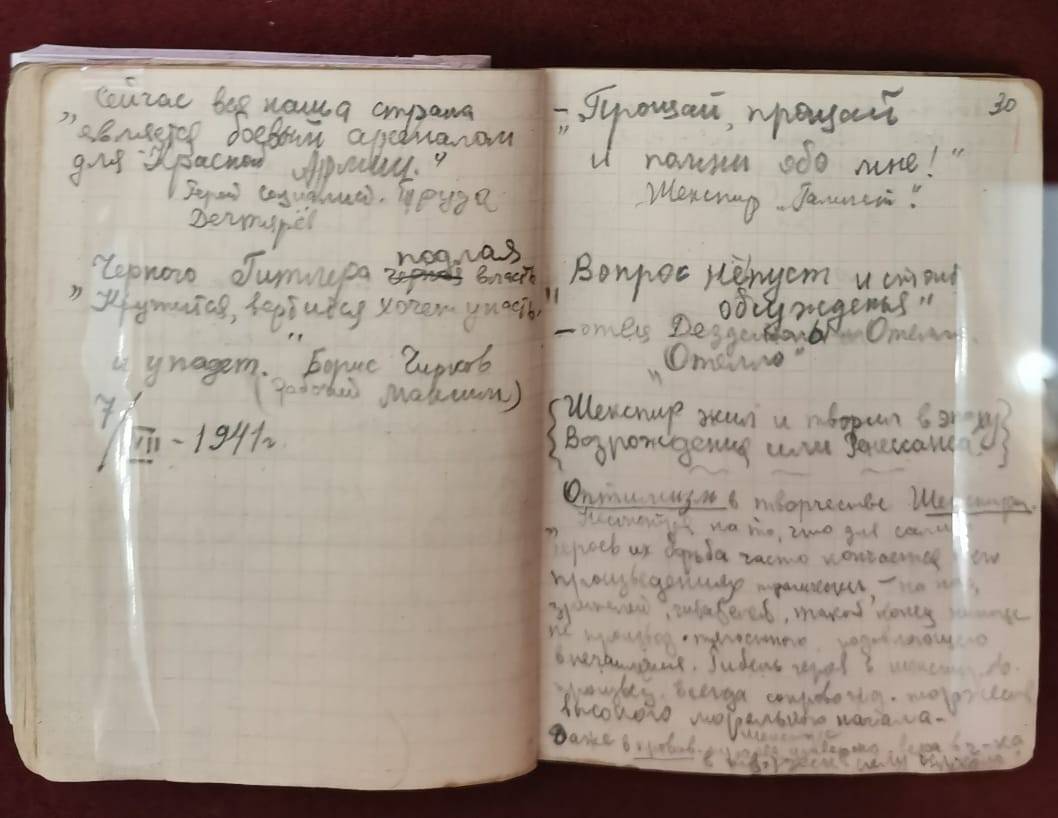 Сейчас вся наша страна
„является боевым арсеналом
для Красной Армии."
Герой социалист. Труда
Дегтярёв
подлая
Черного Гитлера черная власть
„Кружится, вертится хочет упасть,"
и упадет." Борис Чирков
(рабочий Максим)
7/VII - 1941г.
30
- Прощай, прощай
„и помни обо мне!"
Шекспир „Гамлет".
Вопрос не пуст и стоит
„обсужденья"
- отец Дездемоны Отелло.
„Отелло"
{Шекспир жил и творил в эпоху}
{Возрождения или Ренессанса}
Оптимизм в творчестве Шекспира.
Несмотря на то, что для самих
„героев их борьба часто кончается в его
произведениях трагически, - на нас,
зрителей, такой конец
не производ. тягостного, подавляющего
впечатления. Гибель героев в шекспир.
произвед. всегда сопровожд. торжеством
высокого морального начала.
Даже в вера в ч-ка